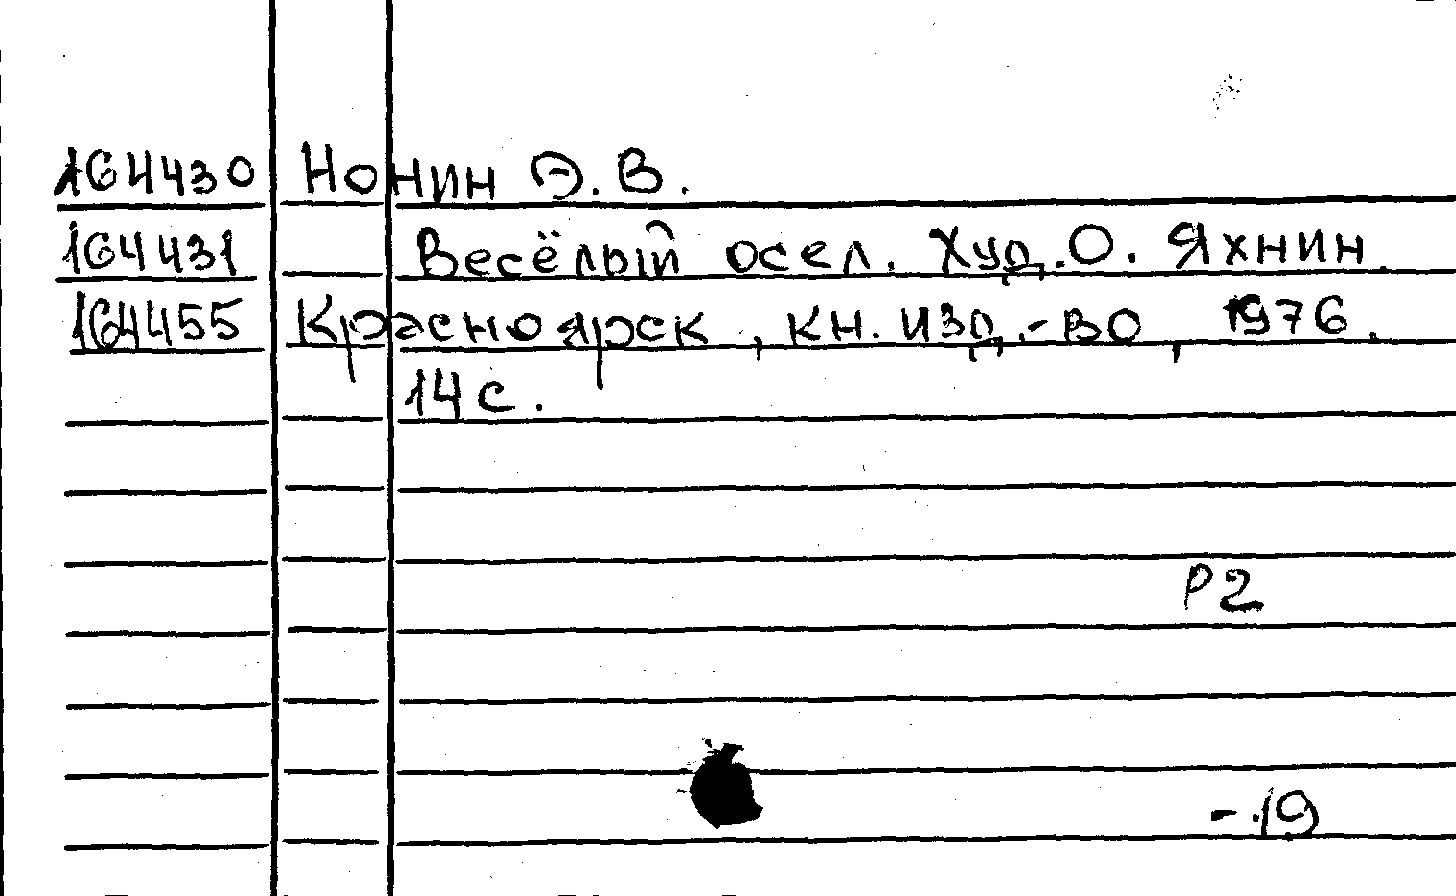 164430 Нонин Э. В.
164431 Весёлый осел. Худ. О. Яхнин.
164455 Красноярск, кн. изд.-во, 1976.
14 с.
Р2
- 19